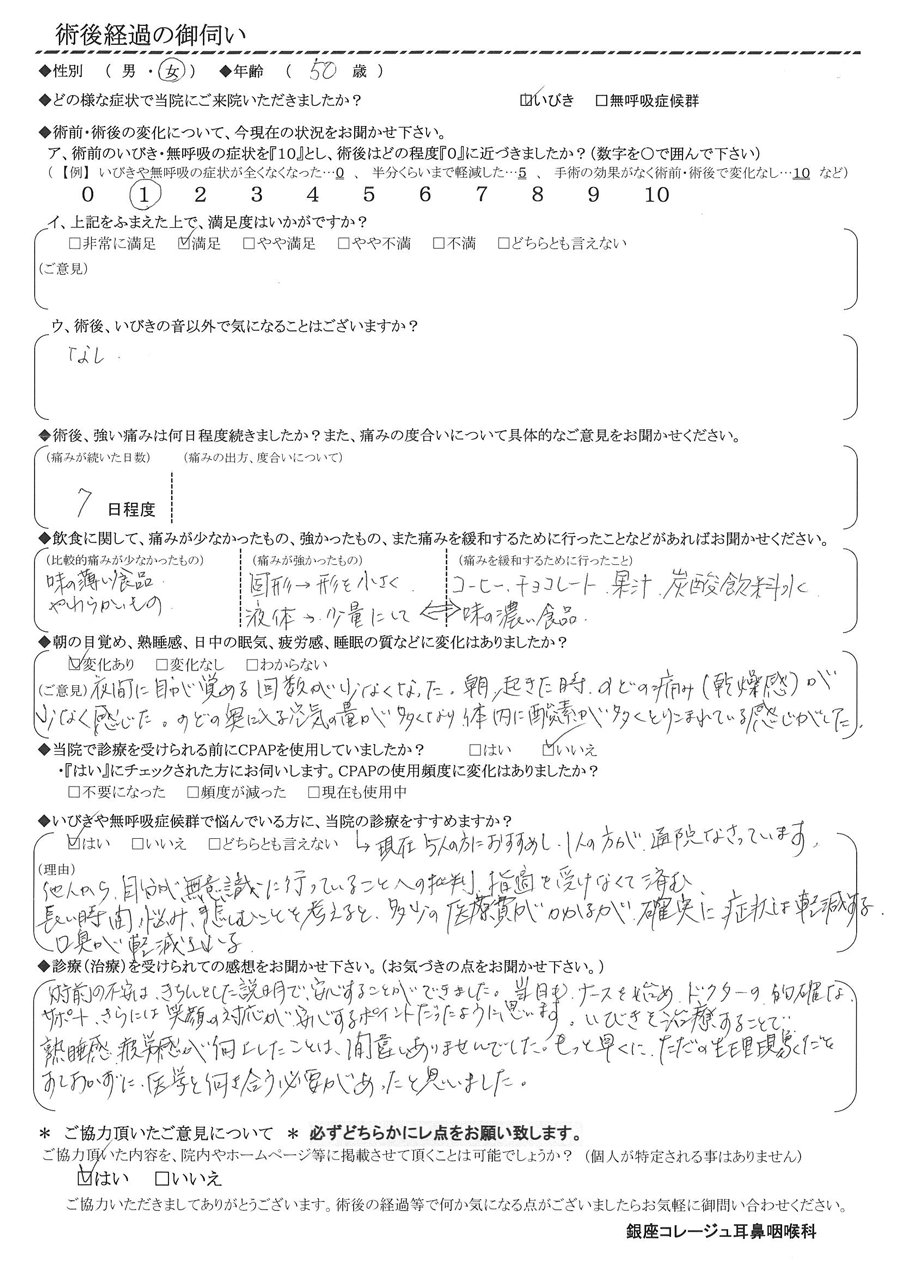 術後経過の御伺い
◆性別 （ 男 ・ 女 ） ◆年齢 （ 50 歳 ）
◆どの様な症状で当院にご来院いただきましたか？ ☑いびき □無呼吸症候群
◆術前・術後の変化について、今現在の状況をお聞かせ下さい。
ア、術前のいびき・無呼吸の症状を『10』とし、術後はどの程度『0』に近づきましたか？（数字を〇で囲んで下さい）
（【例】 いびきや無呼吸の症状が全くなくなった…0 、 半分くらいまで軽減した…5 、 手術の効果がなく術前・術後で変化なし…10 など）
0 1 2 3 4 5 6 7 8 9 10
イ、上記をふまえた上で、満足度はいかがですか？
□非常に満足 ☑満足 □やや満足 □やや不満 □不満 □どちらとも言えない
（ご意見）
ウ、術後、いびきの音以外で気になることはございますか？
なし．
◆術後、強い痛みは何日程度続きましたか？また、痛みの度合いについて具体的なご意見をお聞かせください。
（痛みが続いた日数） （痛みの出方、度合いについて）
7 日程度
◆飲食に関して、痛みが少なかったもの、強かったもの、また痛みを緩和するために行ったことなどがあればお聞かせください。
（比較的痛みが少なかったもの） （痛みが強かったもの） （痛みを緩和するために行ったこと）
味の薄い食品． 固形→形を小さく コーヒー、チョコレート 果汁．炭酸飲料水く
やわらかいもの． 液体→少量にして ⇔ 味の濃い食品．
◆朝の目覚め、熟睡感、日中の眠気、疲労感、睡眠の質などに変化はありましたか？
☑変化あり □変化なし □わからない
（ご意見）夜間に目が覚める回数が少なくなった。朝、起きた時、のどの痛み（乾燥感）が
少なく感じた。のどの奥に入る空気の量が多くなり体内に酸素が多くとりこまれている感じがした．
◆当院で診療を受けられる前にCPAPを使用していましたか？ □はい ☑いいえ
・『はい』にチェックされた方にお伺いします。CPAPの使用頻度に変化はありましたか？
□不要になった □頻度が減った □現在も使用中
◆いびきや無呼吸症候群で悩んでいる方に、当院の診療をすすめますか？
☑はい □いいえ □どちらとも言えない ↳ 現在 5人の方におすすめし、1人の方が、通院なさっています。
（理由）
他人から、自分が無意識に行っていることへの批判、指摘を受けなくて済む、
長い時間、悩み、悲しむことを考えると、多少の医療費がかかるが、確実に症状は軽減する．
口臭が軽減している．
◆診療（治療）を受けられての感想をお聞かせ下さい。（お気づきの点をお聞かせ下さい。）
術前の不安は、きちんとした説明で、安心することができました。当日も、ナースを始め、ドクターの的確な
サポート、さらには笑顔の対応が安心するポイントだったように思います。いびきを治療することで
熟睡感、疲労感が向上したことは、間違いありませんでした。もっと早くに、ただの生理現象だと
せずに、医学と向き合う必要があったと思いました。
＊ ご協力頂いたご意見について ＊ 必ずどちらかにレ点をお願い致します。
ご協力頂いた内容を、院内やホームページ等に掲載させて頂くことは可能でしょうか？ （個人が特定される事はありません）
☑はい □いいえ
ご協力いただきましてありがとうございます。術後の経過等で何か気になる点がございましたらお気軽に御問い合わせください。
銀座コレージュ耳鼻咽喉科